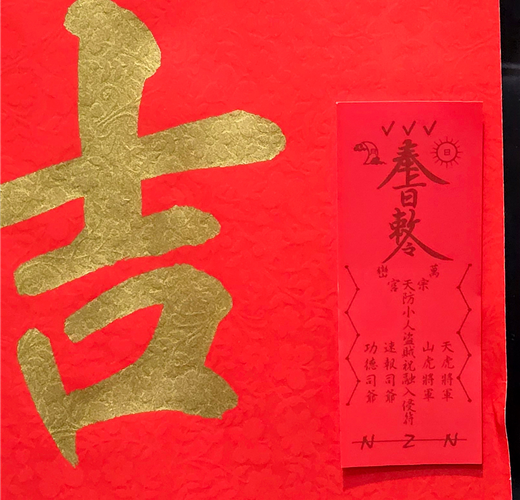 吉
奉
日
日敕令
萬
宗
天虎將軍
山虎將軍
天防小人盜賊祝融入侵符
速報司爺
功德司爺
N Z N